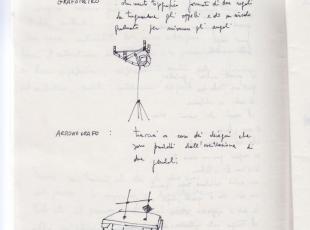 GRAFOMETRO : strumento topografico formato di due regoli
da traguardare gli oggetti e di un circolo
graduato per misurare gli angoli
ARMONOGRAFO : traccia a caso dei disegni che
sono prodotti dall'oscillazione di
due pendoli.